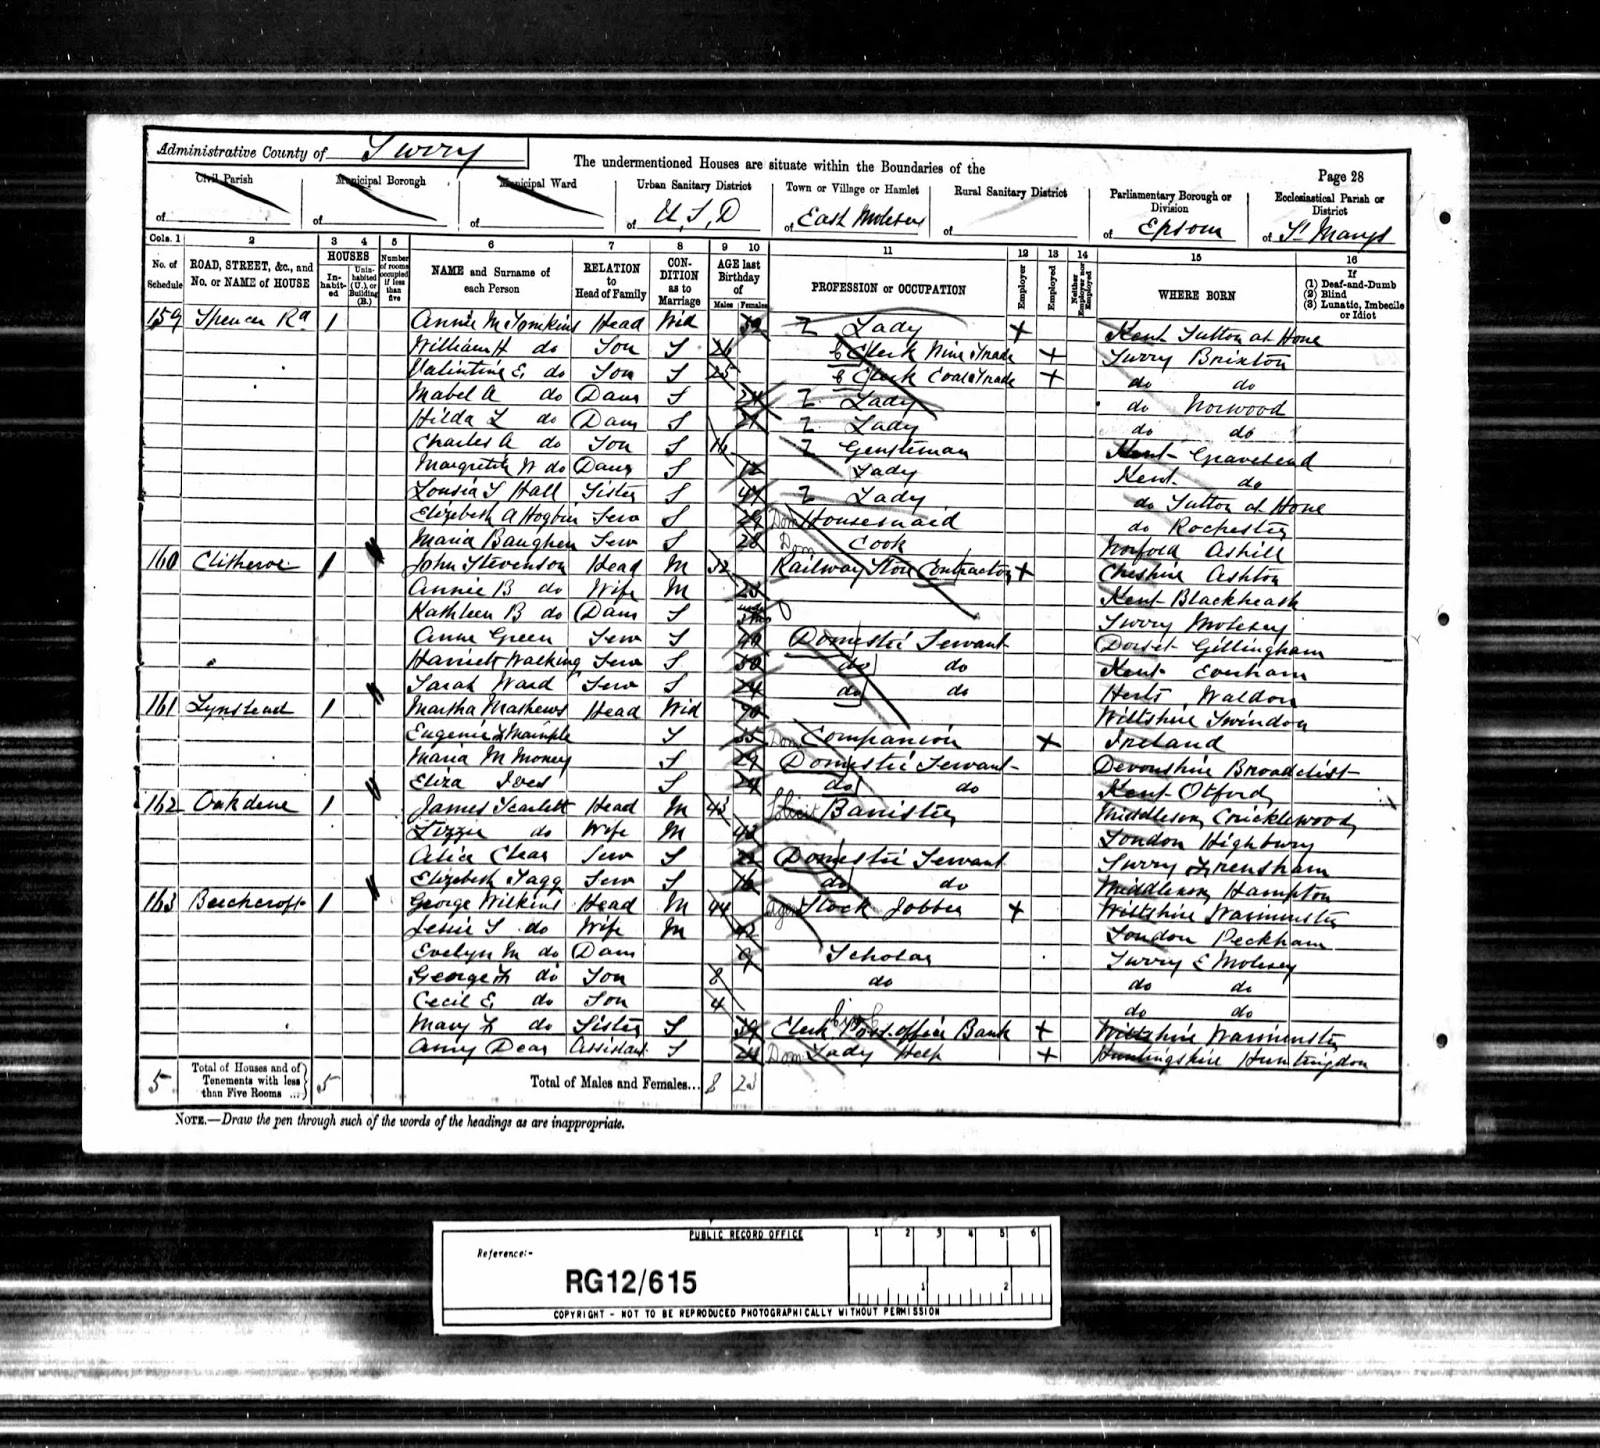 Administrative County of Surrey
The undermentioned Houses are situate within the Boundaries of the
Page 28
Civil Parish of
Municipal Borough of
Municipal Ward of
Urban Sanitary District of U.S.D
Town or Village or Hamlet of East Molesey
Rural Sanitary District of
Parliamentary Borough or Division of Epsom
Ecclesiastical Parish or District of St Marys
Cols. 1 2 3 4 5 6 7 8 9 10 11 12 13 14 15 16
No. of Schedule
ROAD, STREET, &c., and No. or NAME of HOUSE
HOUSES
Inhabited
Uninhabited (U.), or Building (B.)
Number of rooms occupied if less than five
NAME and Surname of each Person
RELATION to Head of Family
CONDITION as to Marriage
AGE last Birthday of
Males Females
PROFESSION or OCCUPATION
Employer
Employed
Neither Employer nor Employed
WHERE BORN
If (1) Deaf-and-Dumb (2) Blind (3) Lunatic, Imbecile or Idiot
159 Spencer Rd 1 Annie M Tomkins Head Wid Lady X Kent Sutton at Hone
William H do Son S 26 Clerk Wine Trade X Surry Brixton
Valintine E do Son S 25 Clerk Coal Trade X do do
Mabel A do Daur S 24 Lady do Norwood
Hilda L do Daur S 21 Lady do do
Charles A do Son S 16 Gentleman Kent Gravesend
W do Daur S 12 Lady Kent do
Lousia S Hall Sister S Lady do Sutton at Hone
Elizebeth A Hogbin Serv S 29 Dom Housemaid do Rochester
Maria Baughen Serv S 28 Dom Cook Norfold Ashill
160 Clitheroe 1 John Stevenson Head M 32 Railway Contractor X Cheshire Ashton
Annie B do Wife M Kent Blackheath
Kathleen B do Daur S Surry Molesey
Anne Green Serv S Domestic Servant Dorset Gillingham
Harriett Serv S do do Kent
Sarah Ward Serv S 24 do do Herts Waldon
161 Lynstead 1 Martha Mathews Head Wid 70 Wiltshire Swindon
Eugenie S Dom Companion X Ireland
Maria M Money S 29 Domestic Servant Devonshire Broadclist
Eliza Ives S 24 do do Kent Otford
162 Oakdene 1 James Scarlett Head M 43 Barrister Middlesex Cricklewood
Lizzie do Wife M London Highbury
Alice Clear Serv S 22 Domestic Servant Surry Frensham
Elizebeth Tagg Serv S 16 do do Middlesex Hampton
163 Beechcroft 1 George Wilkins Head M 44 Stock Jobber X Wiltshire Warminster
Jessie S do Wife M 42 London Peckham
Evelyn M do Daur 9 Scholar Surry E Molesey
George F do Son 8 do do do
Cecil E do Son 4 do do
Mary F do Sister S 39 Clerk Post office Bank X Wiltshire Warminster
Amy Dear Assistant S Dom Lady Help X Huntingshire Huntingdon
5 Total of Houses and of Tenements with less than Five Rooms ... 5 Total of Males and Females... 8 23
NOTE.—Draw the pen through such of the words of the headings as are inappropriate.
PUBLIC RECORD OFFICE
1 2 3 4 5 6
Reference:-
RG12/615
1 2
COPYRIGHT - NOT TO BE REPRODUCED PHOTOGRAPHICALLY WITHOUT PERMISSION